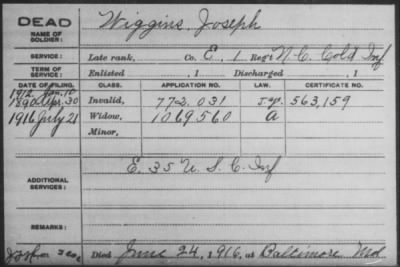 DEAD
NAME OF SOLDIER: Wiggins, Joseph
SERVICE: Late rank, Co. E, 1 Reg't N.C. Cold Inf
TERM OF SERVICE: Enlisted , 1 Discharged , 1
DATE OF FILING. CLASS. APPLICATION NO. LAW. CERTIFICATE NO.
1912 Jan. 10
Apr. 30 Invalid, 772.031 563,159
1916 July 21 Widow, 1069560 a
Minor,
ADDITIONAL SERVICES: E. 35 U.S.C. Inf
REMARKS:
Died June 24, 1916, at Baltimore Md